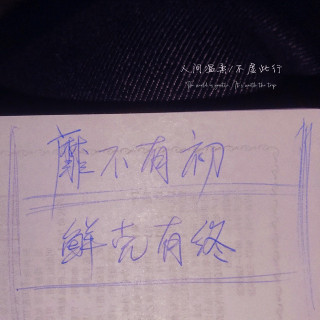 人间温柔/不虚此行
The world is gentle / It's worth the trip
靡不有初
鲜克有终